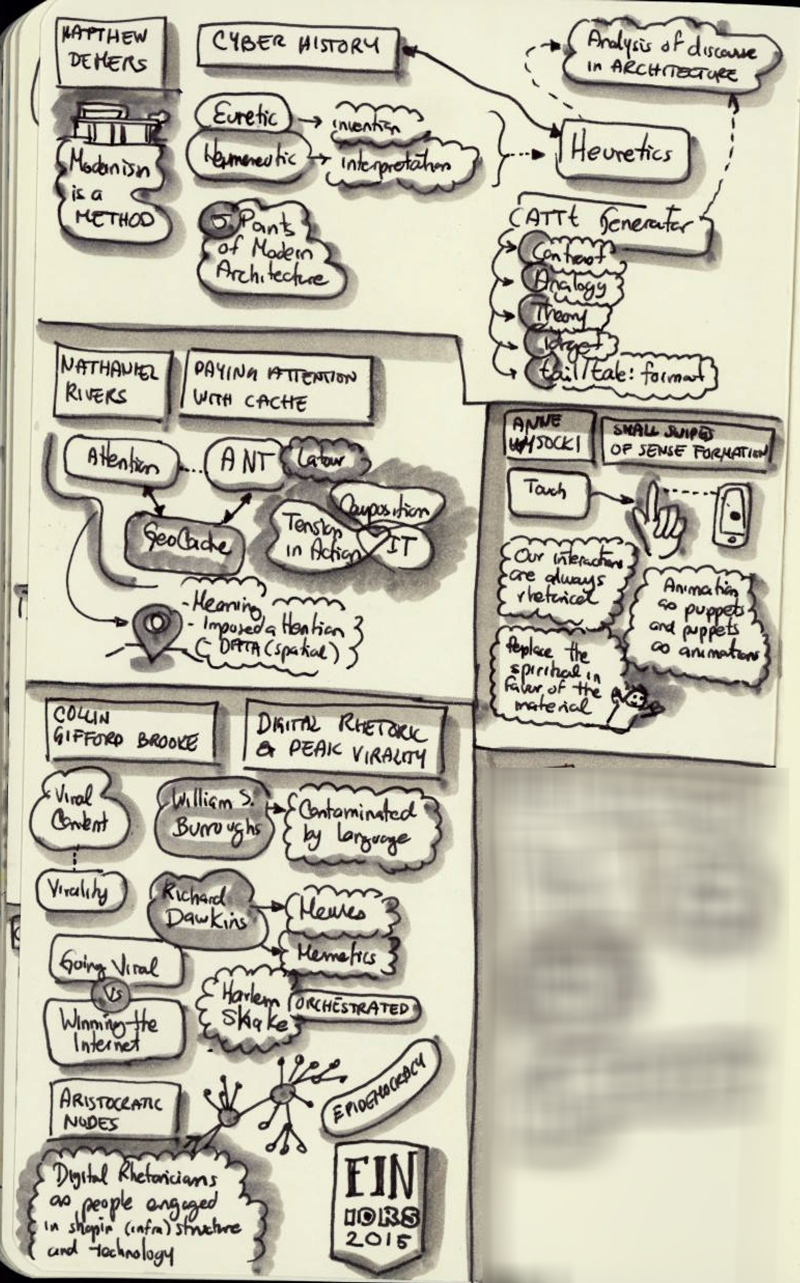 MATTHEW
DEMERS
CYBER HISTORY
Analysis of discourse
in ARCHITECTURE
Euretic
invention
Hermeneutic
interpretation
Heuretics
Modernism
is a
METHOD
5 Points
of Modern
Architecture
CATTt Generator
Contrast
Analogy
Theory
Target
tail/tale: format
NATHANIEL
RIVERS
PAYING ATTENTION
WITH CACHE
Attention
ANT
Latour
GeoCache
Composition
Tension
in Action
IT
- Meaning
- Imposed attention
DATA (spatial)
ANNE
WYSOCKI
SMALL SWIPES
OF SENSE FORMATION
Touch
Our interactions
are always
rhetorical
Animation
as puppets
and puppets
as animations
Replace the
spiritual in
favor of the
material
COLLIN
GIFFORD BROOKE
DIGITAL RHETORIC
& PEAK VIRALITY
Viral
Content
William S.
Burroughs
Contaminated
by language
Virality
Richard
Dawkins
Memes
Memetics
Going Viral
vs
Winning the
Internet
Harlem
Shake
ORCHESTRATED
ARISTOCRATIC
NODES
EPIDEMOCRACY
Digital Rhetoricians
as people engaged
in shapin (infra)structure
and technology
FIN
IDRS
2015